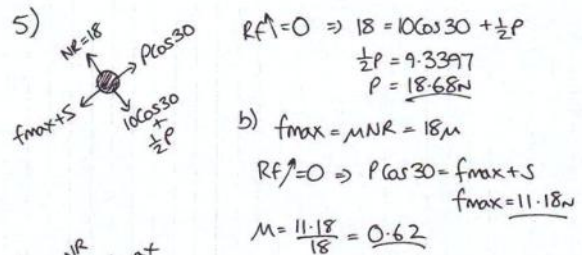 5)
NR=18
PCos30
fmax+5
10Cos30
+
½P
Rf↑=0 ⇒ 18 = 10Cos30 + ½P
½P = 9.3397
P = 18.68N
b) fmax = μNR = 18μ
Rf↗=0 ⇒ PCos30 = fmax+5
fmax = 11.18N
μ = 11.18/18 = 0.62
NR